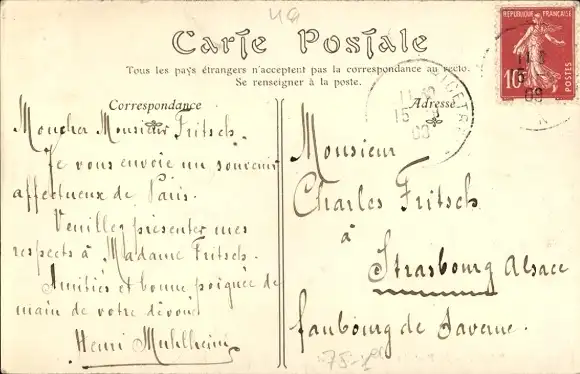 49
Carte Postale
Tous les pays étrangers n'acceptent pas la correspondance au recto.
Se renseigner à la poste.
Correspondance
Adresse
RÉPUBLIQUE FRANÇAISE
10
POSTES
15
08
Mon cher Monsieur Fritsch.
Je vous envoie un souvenir
affectueux de Paris.
Veuillez présenter mes
respects à Madame Fritsch.
Amitiés et bonne poignée de
main de votre dévoué
Henri Muhlheim
Monsieur
Charles Fritsch
à
Strasbourg Alsace
faubourg de Saverne.
75-1er